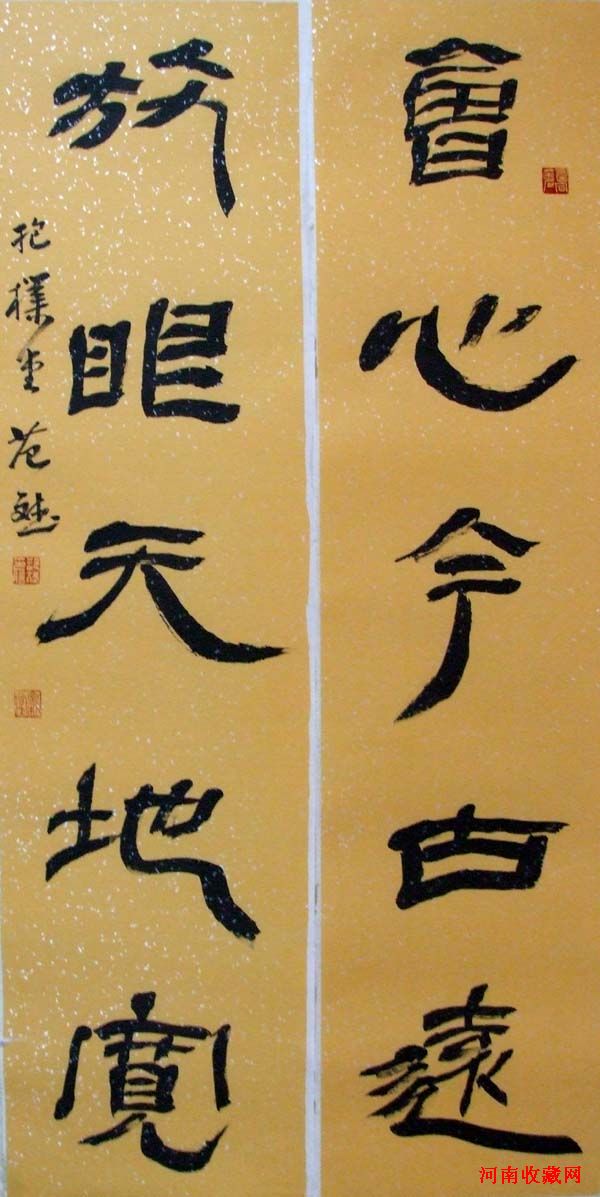 會心今古遠
放眼天地寬
抱樸堂范
河南收藏网